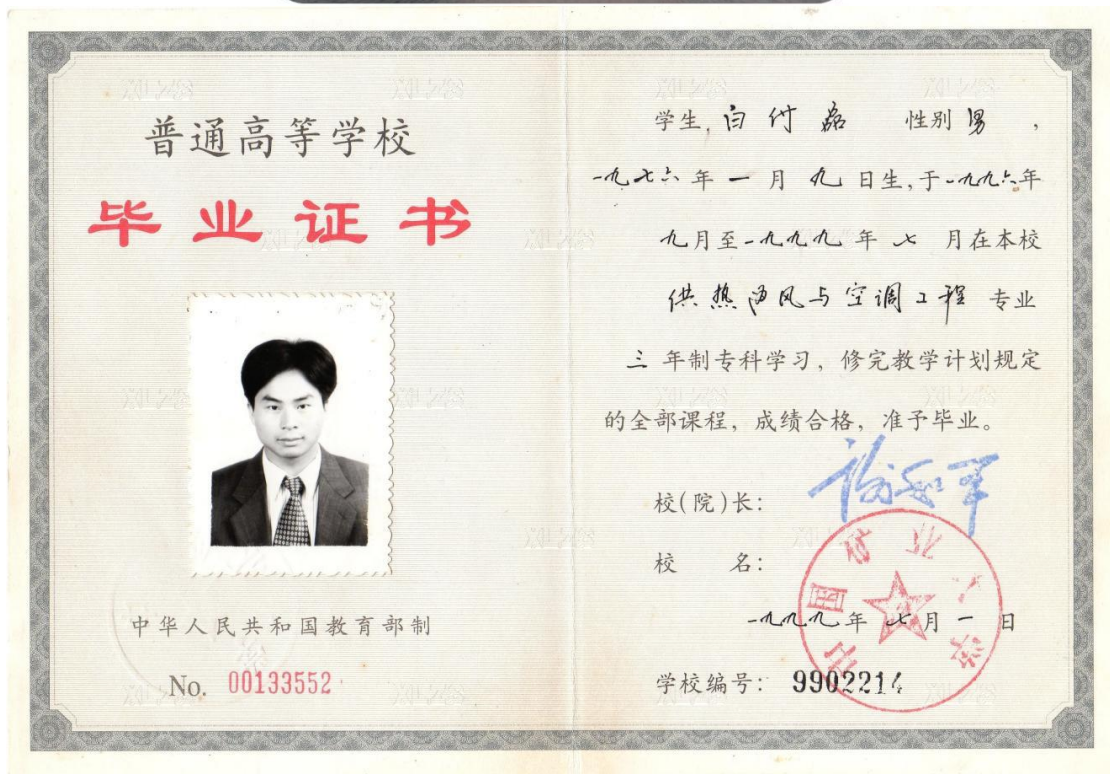 普通高等学校
毕业证书
中华人民共和国教育部制
No. 00133552
学生 白付磊 性别 男 ,
一九七六年一月九日生,于一九九六年
九月至一九九九年七月在本校
供热通风与空调工程 专业
三 年制专科学习，修完教学计划规定
的全部课程，成绩合格，准予毕业。
校(院)长:
校 名:
中国矿业大学
一九九九年七月一日
学校编号: 9902214